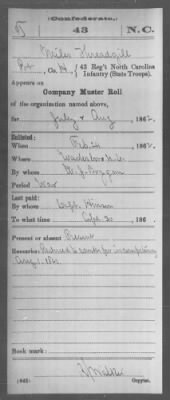 (Confederate.)
43 N.C.
Miles Threadgill
Pvt, Co. H, 43 Reg't North Carolina
Infantry (State Troops).
Appears on
Company Muster Roll
of the organization named above,
for July & Aug, 186
Enlisted:
When Feb. 24, 186
Where Wadesboro N.C.
By whom
Period War
Last paid:
By whom Capt.
To what time 186
Present or absent Present
Remarks: Reduced to ranks for incompetency
Aug. 1, 186
Book mark:
(642)
Copyist.